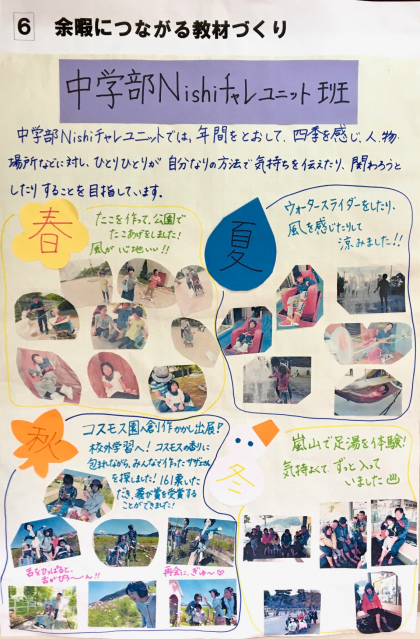 6 余暇につながる教材づくり
中学部Nishiチャレユニット班
中学部Nishiチャレユニットでは、年間をとおして、四季を感じ、人、物、
場所などに対し、ひとりひとりが自分なりの方法で気持ちを伝えたり、関わろうと
したりすることを目指しています。
春
たこを作って、公園で
たこあげをしました!
風が心地いい!!
夏
ウォータースライダーをしたり、
風を感じたりして
涼みました!!
秋
コスモス園へ創作かかし出展!
校外学習へ! コスモスの香りに
包まれながら、みんなで作ったサザエさん
を探しました! 161票いた
だき、賞を受賞する
ことができました!
舌をひっぱると、
再会に、ぎゅ〜♡
冬
嵐山で足湯を体験!
気持よくて、ずっと入って
いました